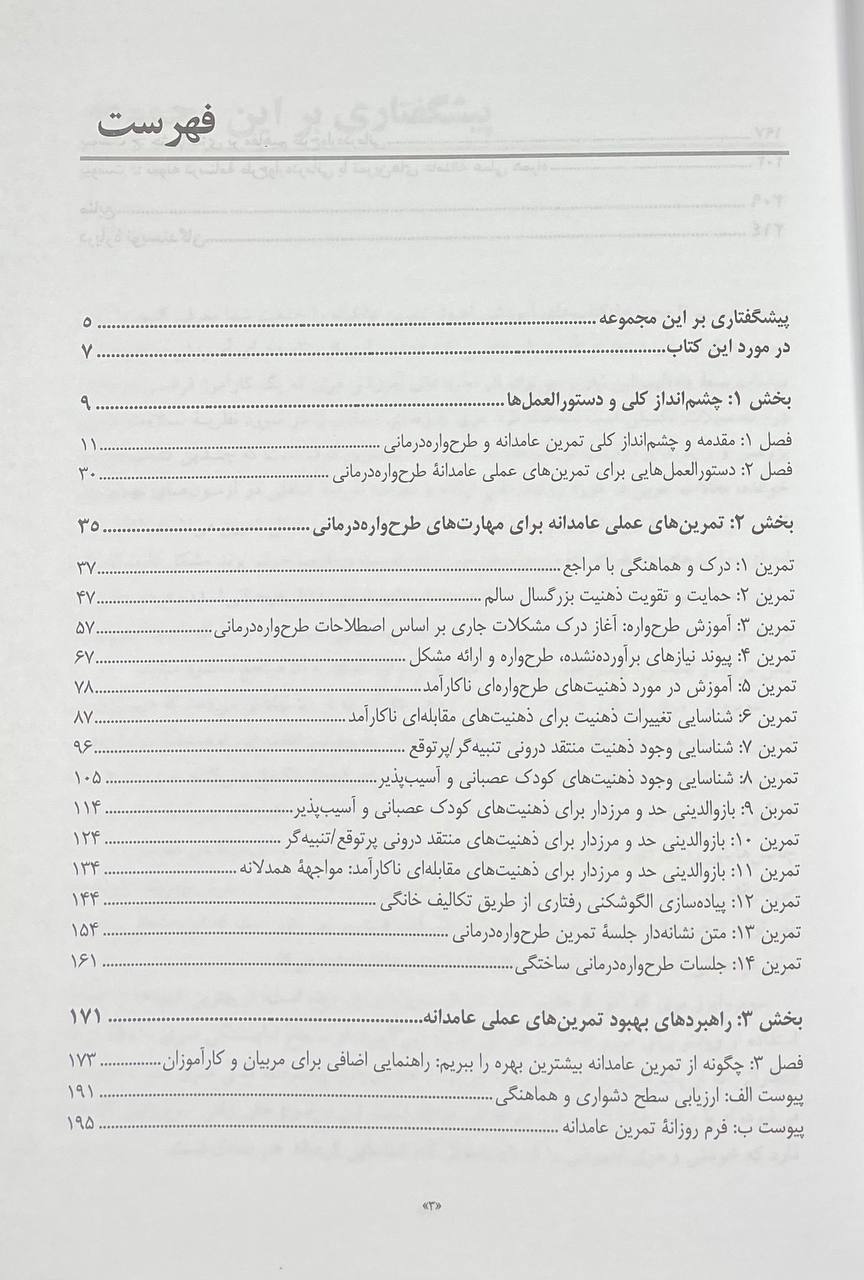 فهرست
پیشگفتاری بر این مجموعه ........ ۵
در مورد این کتاب ........ ۷
بخش ۱: چشم‌انداز کلی و دستورالعمل‌ها ........ ۹
فصل ۱: مقدمه و چشم‌انداز کلی تمرین عامدانه و طرح‌واره‌درمانی ........ ۱۱
فصل ۲: دستورالعمل‌هایی برای تمرین‌های عملی عامدانهٔ طرح‌واره‌درمانی ........ ۳۰
بخش ۲: تمرین‌های عملی عامدانه برای مهارت‌های طرح‌واره‌درمانی ........ ۳۵
تمرین ۱: درک و هماهنگی با مراجع ........ ۳۷
تمرین ۲: حمایت و تقویت ذهنیت بزرگسال سالم ........ ۴۷
تمرین ۳: آموزش طرح‌واره: آغاز درک مشکلات جاری بر اساس اصطلاحات طرح‌واره‌درمانی ........ ۵۷
تمرین ۴: پیوند نیازهای برآورده‌نشده، طرح‌واره و ارائه مشکل ........ ۶۷
تمرین ۵: آموزش در مورد ذهنیت‌های طرح‌واره‌ای ناکارآمد ........ ۷۸
تمرین ۶: شناسایی تغییرات ذهنیت برای ذهنیت‌های مقابله‌ای ناکارآمد ........ ۸۷
تمرین ۷: شناسایی وجود ذهنیت منتقد درونی تنبیه‌گر/پرتوقع ........ ۹۶
تمرین ۸: شناسایی وجود ذهنیت‌های کودک عصبانی و آسیب‌پذیر ........ ۱۰۵
تمرین ۹: بازوالدینی حد و مرزدار برای ذهنیت‌های کودک عصبانی و آسیب‌پذیر ........ ۱۱۴
تمرین ۱۰: بازوالدینی حد و مرزدار برای ذهنیت‌های منتقد درونی پرتوقع/تنبیه‌گر ........ ۱۲۴
تمرین ۱۱: بازوالدینی حد و مرزدار برای ذهنیت‌های مقابله‌ای ناکارآمد: مواجههٔ همدلانه ........ ۱۳۴
تمرین ۱۲: پیاده‌سازی الگوشکنی رفتاری از طریق تکالیف خانگی ........ ۱۴۴
تمرین ۱۳: متن نشانه‌دار جلسهٔ تمرین طرح‌واره‌درمانی ........ ۱۵۴
تمرین ۱۴: جلسات طرح‌واره‌درمانی ساختگی ........ ۱۶۱
بخش ۳: راهبردهای بهبود تمرین‌های عملی عامدانه ........ ۱۷۱
فصل ۳: چگونه از تمرین عامدانه بیشترین بهره را ببریم: راهنمایی اضافی برای مربیان و کارآموزان ........ ۱۷۳
پیوست الف: ارزیابی سطح دشواری و هماهنگی ........ ۱۹۱
پیوست ب: فرم روزانهٔ تمرین عامدانه ........ ۱۹۵
«۳»